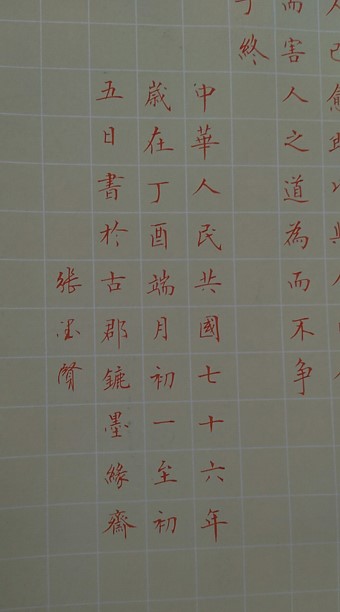 而害人之道為而不争
終
中華人民共國七十六年
歲在丁酉端月初一至初
五日書於古郡鏕墨緣齋
張賢